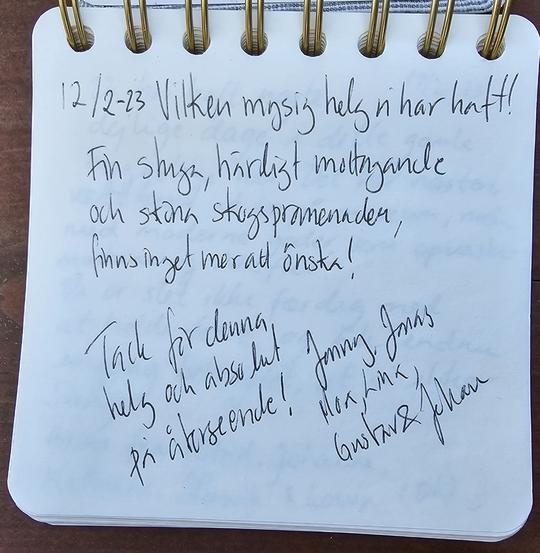 12/2-23 Vilken mysig helg vi har haft!
Fin stuga, härligt mottagande
och sköna skogspromenader,
finns inget mer att önska!
Tack för denna
helg och absolut
på återseende!
Jenny, Jonas
Moa, Lina,
Gustav & Johan